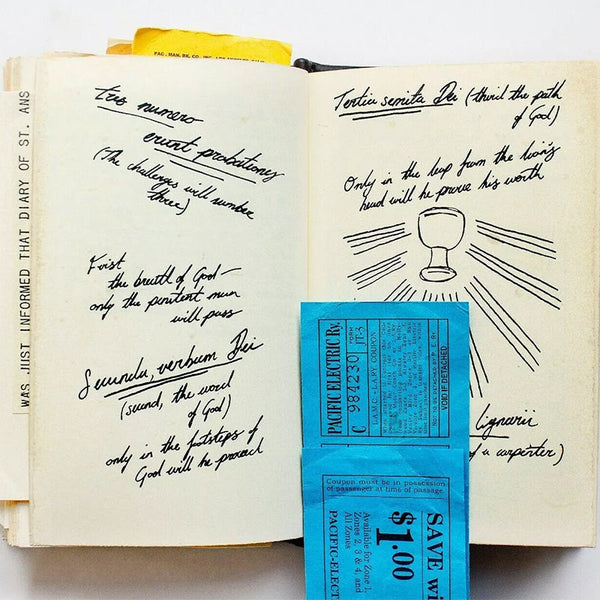 WAS JUST INFORMED THAT DIARY OF ST. ANS
tres numero
erunt probationes
(The challenges will number
three)
First
the breath of God—
only the penitent man
will pass
Secunda, verbum Dei
(second, the word
of God)
only in the footsteps of
God will he proceed
Tertia semita Dei (third the path
of God)
Only in the leap from the lion's
head will he prove his worth
Lignarii
of a carpenter)
PACIFIC ELECTRIC Ry.
C 984230
FORM
JT-3
L.A.M.C.-L.A.RY COUPON
VOID IF DETACHED
Coupon must be in possession
of passenger at time of passage.
SAVE wi
$1.00
Available for Zone 1,
Zones 2, 3 & 4, and
All Zones
PACIFIC-ELECT